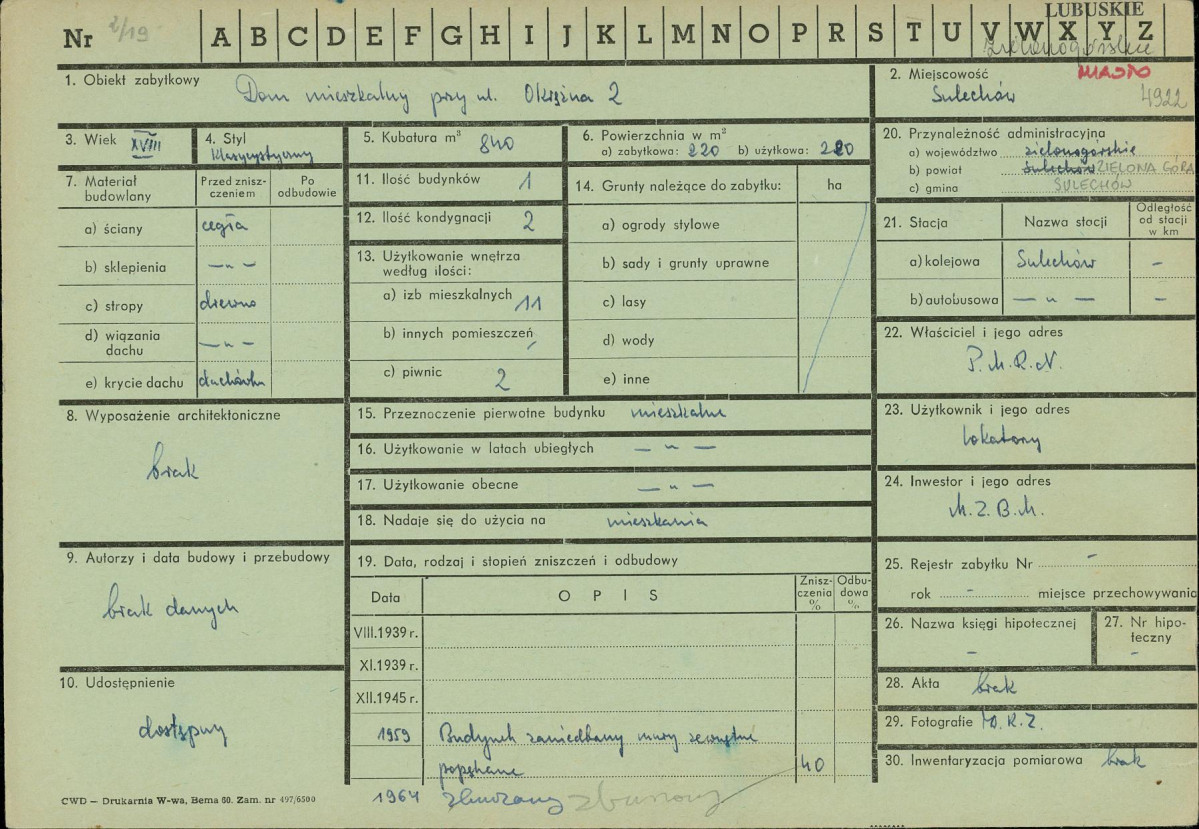 LUBUSKIE
Nr 2/19 A B C D E F G H I J K L M N O P R S T U V W X Y Z
zielonogórskie
1. Obiekt zabytkowy
Dom mieszkalny przy ul. Okrężna 2
2. Miejscowość MIASTO
Sulechów 4922
3. Wiek XVIII
4. Styl
klasycystyczny
5. Kubatura m³ 840
6. Powierzchnia w m²
a) zabytkowa: 220 b) użytkowa: 220
20. Przynależność administracyjna
a) województwo zielonogórskie
b) powiat Sulechów ZIELONA GÓRA
c) gmina SULECHÓW
7. Materiał budowlany
Przed zniszczeniem
Po odbudowie
a) ściany cegła
b) sklepienia — „ —
c) stropy drewno
d) wiązania dachu — „ —
e) krycie dachu dachówka
11. Ilość budynków 1
12. Ilość kondygnacji 2
13. Użytkowanie wnętrza
według ilości:
a) izb mieszkalnych 11
b) innych pomieszczeń
c) piwnic 2
14. Grunty należące do zabytku: ha
a) ogrody stylowe
b) sady i grunty uprawne
c) lasy
d) wody
e) inne
21. Stacja
Nazwa stacji
Odległość od stacji w km
a) kolejowa Sulechów –
b) autobusowa — „ — –
22. Właściciel i jego adres
P.M.R.N.
8. Wyposażenie architektoniczne
brak
15. Przeznaczenie pierwotne budynku mieszkalne
16. Użytkowanie w latach ubiegłych — „ —
17. Użytkowanie obecne — „ —
18. Nadaje się do użycia na mieszkania
23. Użytkownik i jego adres
lokatorzy
24. Inwestor i jego adres
M.Z.B.M.
9. Autorzy i data budowy i przebudowy
brak danych
10. Udostępnienie
dostępny
19. Data, rodzaj i stopień zniszczeń i odbudowy
Data
OPIS
Zniszczenia %
Odbudowa %
VIII.1939 r.
XI.1939 r.
XII.1945 r.
1959 Budynek zaniedbany mury zewnętrzne
popękane 40
1964 zburzony zburzony
25. Rejestr zabytku Nr –
rok – miejsce przechowywania
26. Nazwa księgi hipotecznej
–
27. Nr hipoteczny
–
28. Akta brak
29. Fotografie W.K.Z.
30. Inwentaryzacja pomiarowa brak
CWD — Drukarnia W-wa, Bema 60. Zam. nr 497/6500